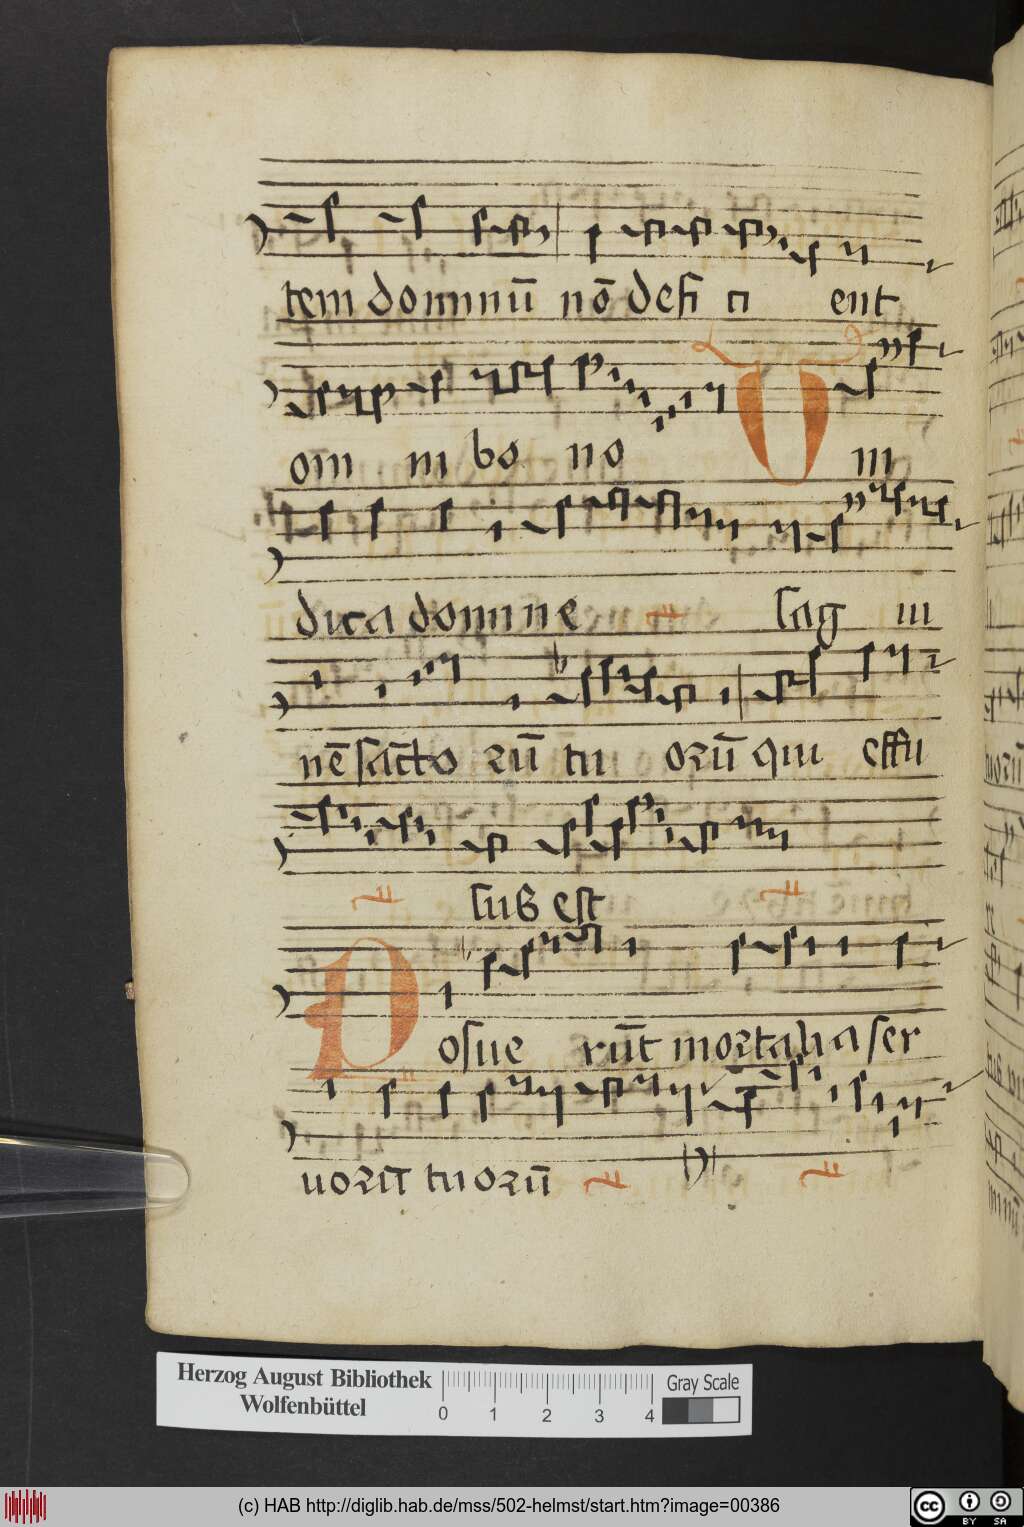 tem dominū nō defi ci ent
om ni bo no V in
dica domine sang ui
nē sācto rū tu orū qui effu
sus est
Posue rūt mortalia ser
uorū tuorū
Herzog August Bibliothek
Wolfenbüttel
0 1 2 3 4
Gray Scale
(c) HAB http://diglib.hab.de/mss/502-helmst/start.htm?image=00386
cc BY SA